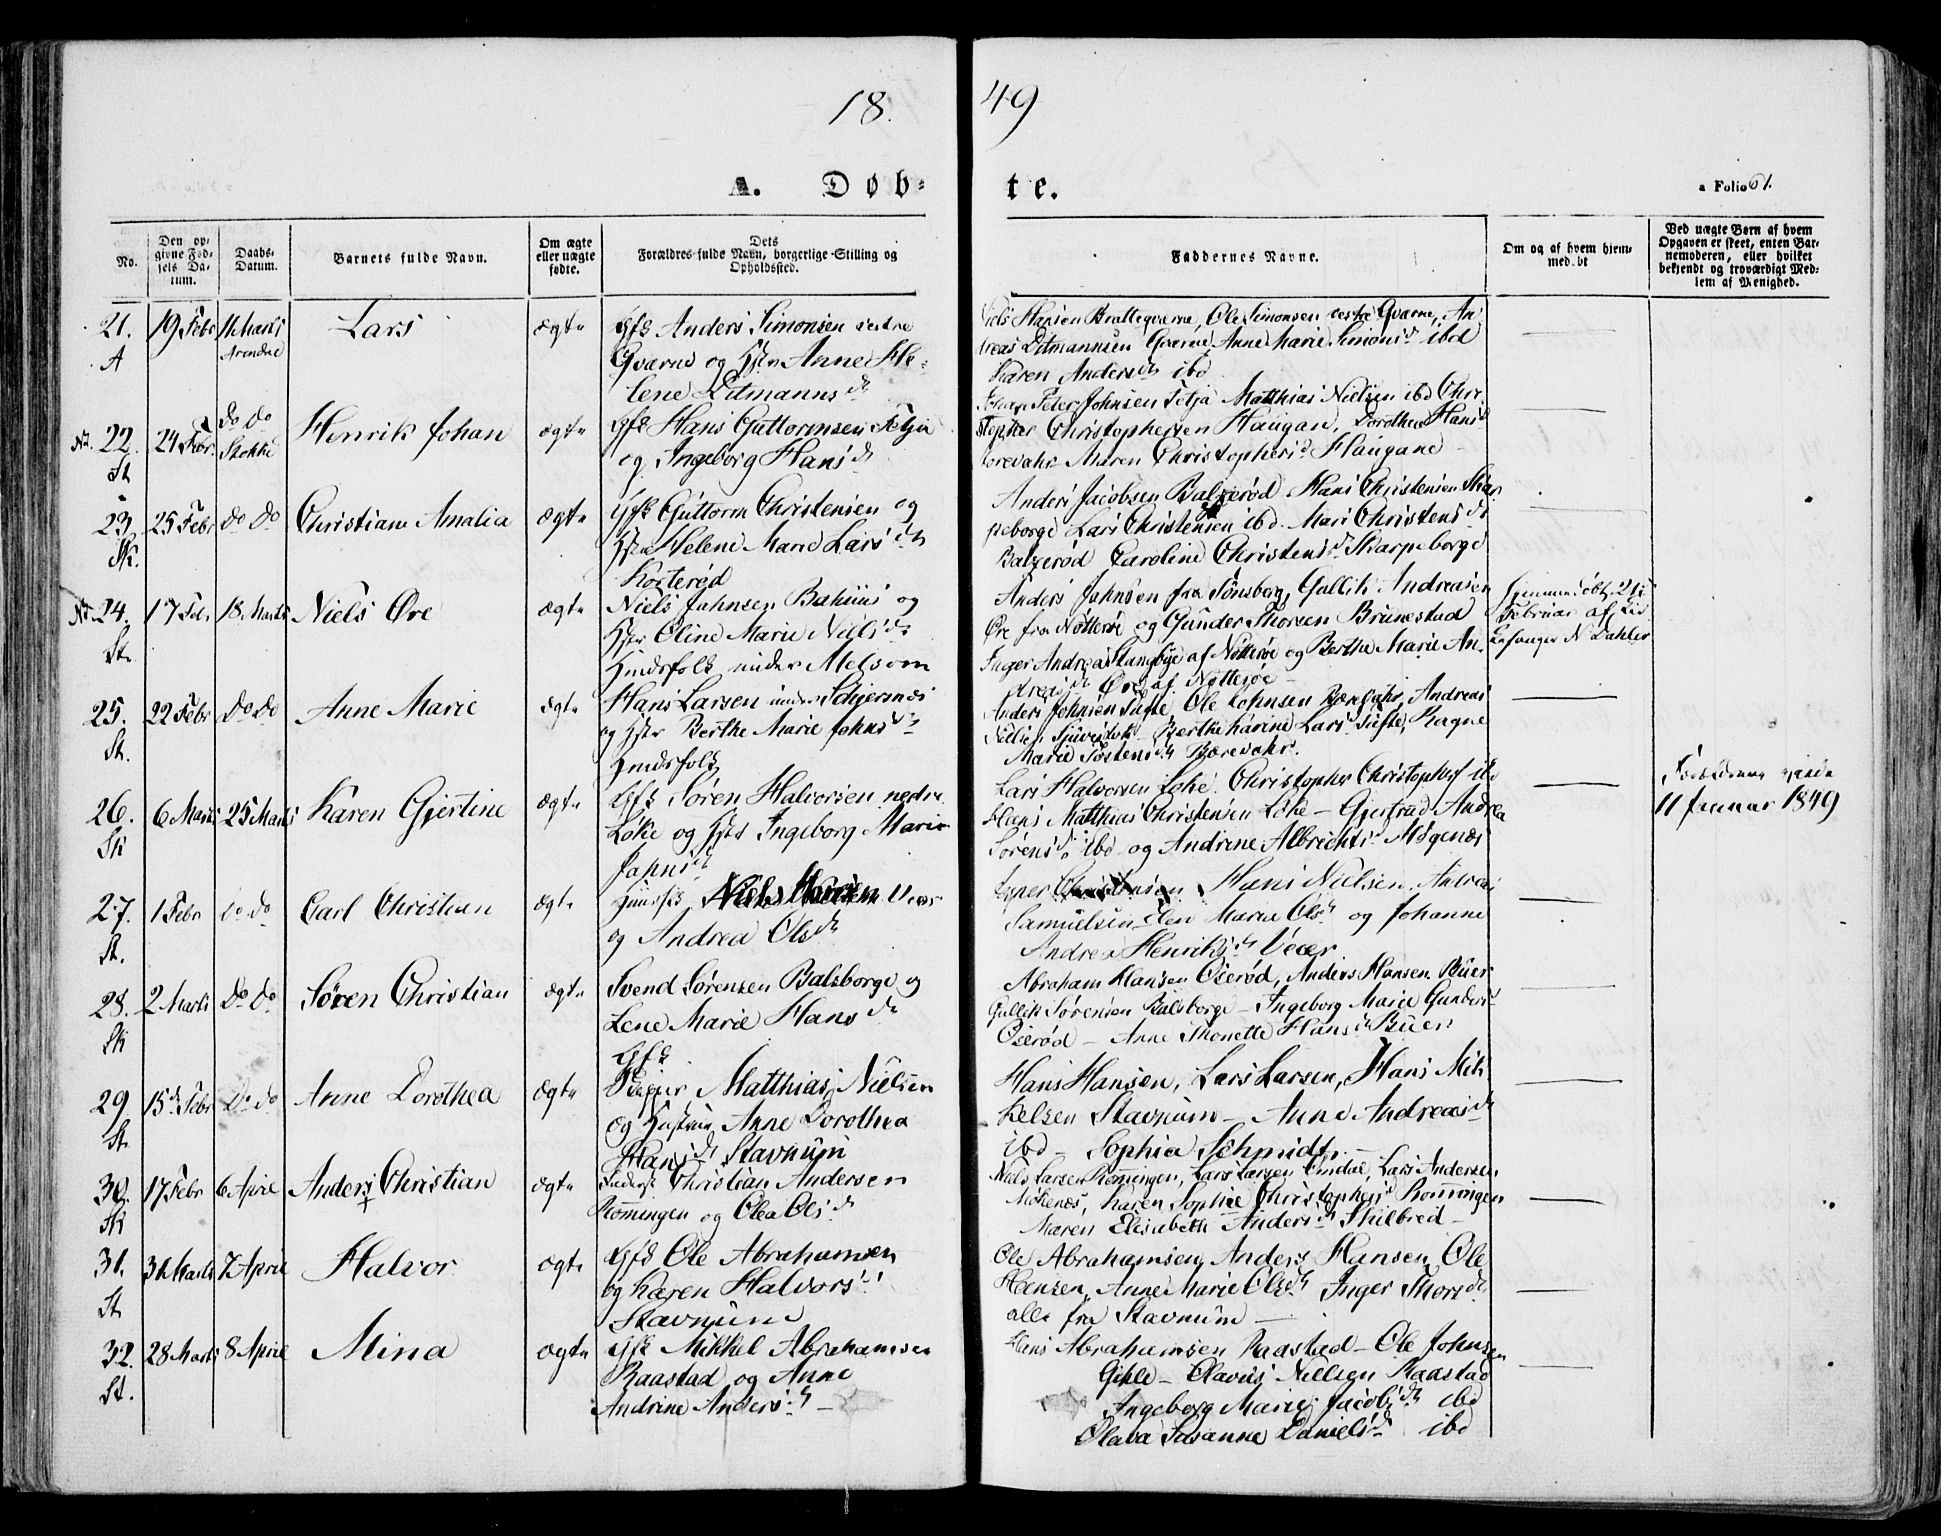 18 49
A. Døb- te. a Folio 61.
No.
Den op-
givne Fød-
sels Da-
tum.
Daabs-
Datum.
Barnets fulde Navn.
Om ægte
eller uægte
fødte.
Dets
Forældres fulde Navn, borgerlige Stilling og
Opholdssted.
Faddernes Navne.
Om og af hvem hjem-
medøbt
Ved uægte Børn af hvem
Opgaven er skeet, enten Bar-
nemoderen, eller hvilket
bekjendt og troværdigt Med-
lem af Menighed.
21. 19 Febr 11 Marts Lars ægte Gfs Anders Simonsen vestre
A Arendal
Gvarne og Hstr Anne He-
lene Ditmannsdr
Niels Hansen Brattegvarne, Ole Simonsen vestre Gvarne, An
dreas Ditmannsen Gvarne, Anne Marie Simonsdr ibd
Karen Andersdr ibd
No. 22. 24 Febr. do do Henrik Johan ægte Gfs Hans Guttormsen Tetja
St Stokke
og Ingeborg Hansdr
Johan Peter Johnsen Tetja Matthias Nielsen ibd Chri
stopher Christophersen Haugan, Dorothea Hansd
Borevahr Maren Christophersd Haugane
23. 25 Febr do do Christiane Amalia ægte Gfs Guttorm Christensen og
Sk.
Hstr Helene Marie Larsdr
Korterød
Anders Jacobsen Balzerød Hans Christensen Skar
peborge Lars Christensen ibd. Mari Christensdr
Balzerød Caroline Christensd Skarpeborge
No. 24. 17 Feb. 18 Marts Niels Øre ægte Niels Johnsen Bahuus og
St.
Hstr Oline Marie Nielsdr
Huusfolk under Melsom
Anders Johnsen fra Tønsberg, Gullik Andreasen
Øre fra Nøtterøe og Gunder Thorsen Brunestad
Inger Andrea Stangbye af Nøtterøe og Berthe Marie An
dreasdr Øre af Nøtterøe
Hjemmedøbt 21de
Februar af
N Dahler
25. 22 Febr do do Anne Marie ægte Hans Larsen under Schjersnæs
St.
og Hstr Berthe Marie Johnsdr
Huusfolk
Anders Johnsen Tufte, Ole Johnsen Borevahr, Andreas
Nielsen Berthe Karine Larsd Tufte, Ragne
Marie Tostensdr Borevahr.
26. 6 Marts 25 Marts Karen Gjertine ægte Gfs Søren Halvorsen nedre
Sk
Løke og Hstr Ingeborg Marie
Johnsdr
Lars Halvorsen Løke. Christopher Christophers ibd
Hans Matthias Christensen Løke - Gjertrud Andrea
Sørensd ibd og Andrine Albrechtsd Magenæs
11 Januar 1849
27. 1 Febr do do Carl Christian ægte Huusfs Niels Hansen Veær
St.
og Andrea Olsdr
Christensen Hans Nielsen. Andreas
Samuelsen Elen Maria Olsdr og Johanne
Andrea Henriksdr Veær
28. 2 Marts do do Søren Christian ægte Svend Sørensen Balsborge og
Sk
Lene Marie Hansdr
Gfs
Abraham Hansen Oserød, Anders Hansen Buer
Gullik Sørensen Balsborge - Ingeborg Marie Gundersd
Oserød - Anne Thonette Hansdr Buer
29. 15d Febr do do Anne Dorothea ægte Matthias Nielsen
St.
og Hustru Anne Dorothea
Hansdr Stavnum
Hans Hansen, Lars Larsen, Hans Mik
kelsen Stavnum - Anne Andreasdr
ibd - Sophia Schmidt
30. 17 Febr 6 April Anders Christian ægte Christian Andersen
Sk
Rømmingen og Olea Olsdr
Niels Larsen Rommingen, Lars Larsen Omdal, Lars Andersen
Møkenæs, Karen Sophie Christophersd Rommingen
Maren Elisabeth Andersdr Skilbred
31. 31 Marts 7 April Halvor ægte Gfs Ole Abrahamsen
St
og Karen Halvorsdr
Stavnum
Ole Abrahamsen, Anders Hansen, Ole
Hansen, Anne Marie Olsdr Inger Thorsdr
alle fra Stavnum
32. 28 Marts 8 April Mina ægte Gfs Mikkel Abrahamsen
St.
Raastad og Anne
Andrine Andersdr
Hans Abrahamsen Raastad - Ole Johnsen
Gihle - Olavus Nielsen Raastad
Ingeborg Marie Jacobsdr ibd
Olava Susanne Danielsdr ibd